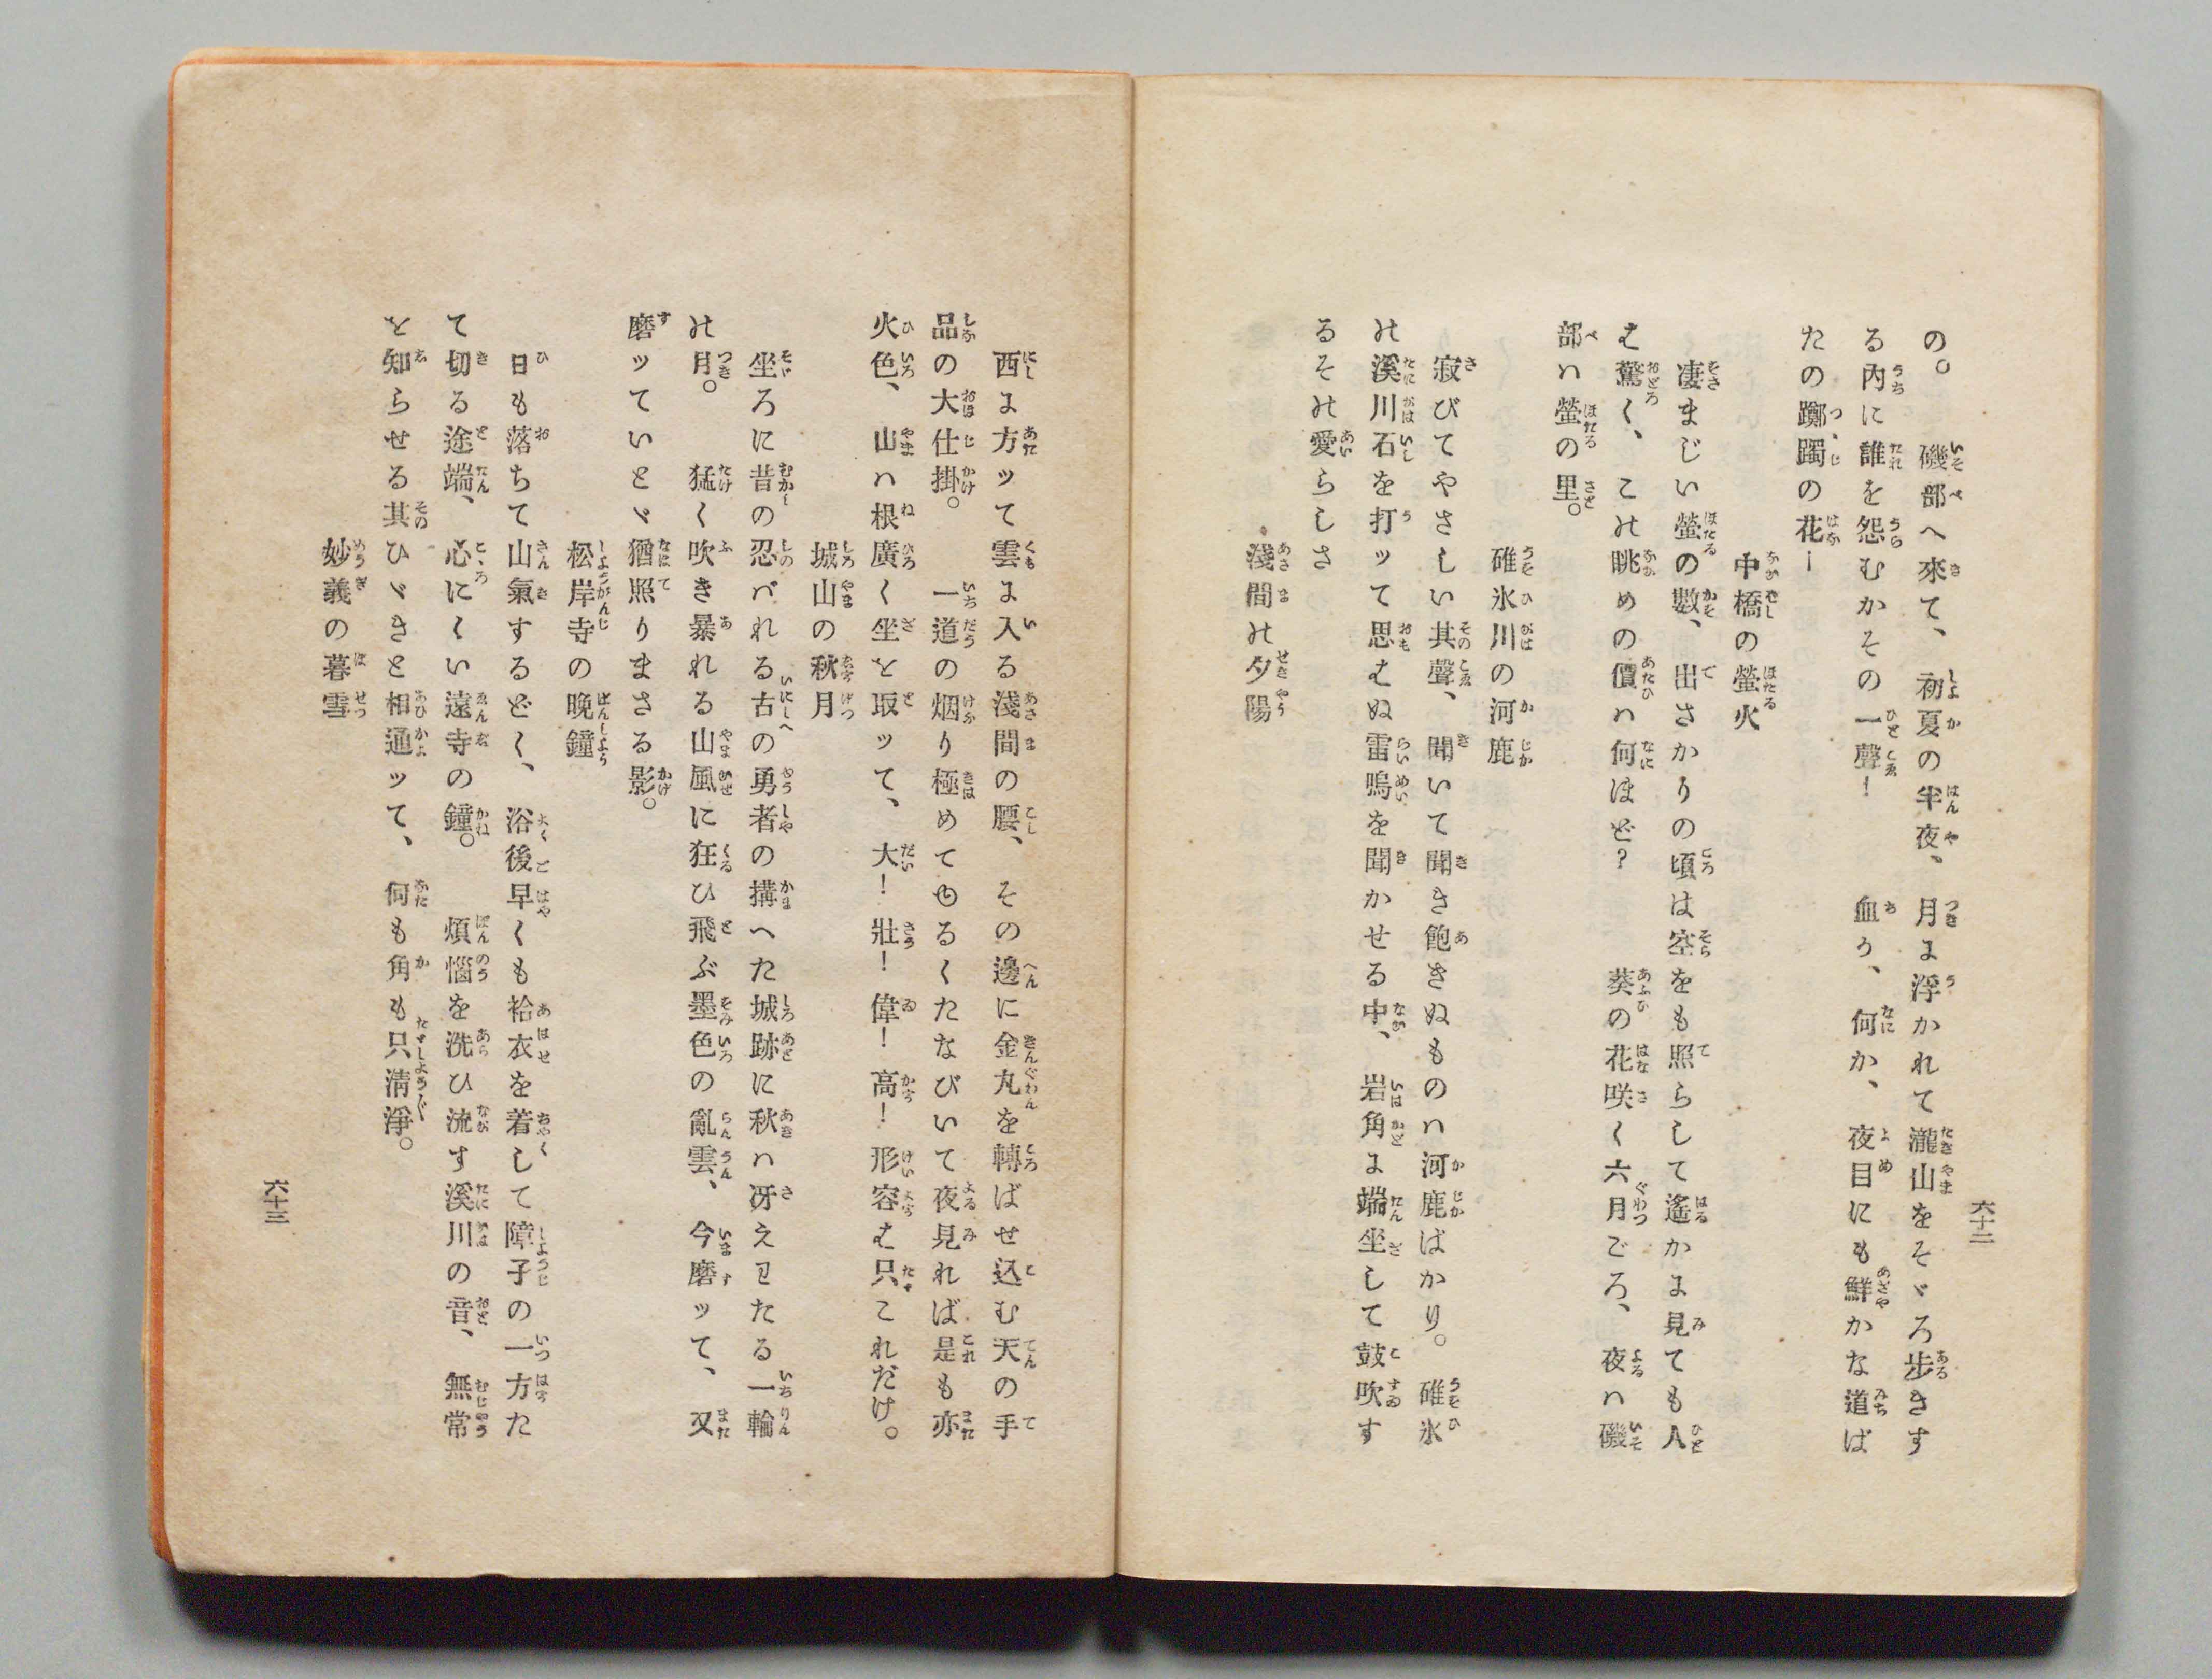 六十二
の。　磯部へ來て、初夏の半夜、月よ浮かれて瀧山をそゞろ步きす
る內に誰を怨むかその一聲！　血り、何か、夜目にも鮮かな道ば
たの躑躅の花ー
中橋の螢火
凄まじい螢の數、出さかりの頃は空をも照らして遙かよ見ても人
む驚く、この眺めの價ハ何ほど？　葵の花咲く六月ごろ、夜ハ磯
部ハ螢の里。
碓氷川の河鹿
寂びてやさしい其聲、聞いて聞き飽きぬものハ河鹿ばかり。碓氷
の溪川石を打ッて思むぬ雷鳴を聞かせる中、岩角よ端坐して鼓吹す
るその愛らしさ
淺間の夕陽
西よ方ッて雲よ入る淺間の腰、その邊に金丸を轉ばせ込む天の手
品の大仕掛。　一道の烟り極めてゆるくたなびいて夜見れば是も亦
火色、山ハ根廣く坐を取ッて、大！壯！偉！高！形容む只これだけ。
城山の秋月
坐ろに昔の忍バれる古の勇者の搆へた城跡に秋ハ冴えわたる一輪
の月。　猛く吹き暴れる山風に狂ひ飛ぶ墨色の亂雲、今磨ッて、又
磨ッていとゞ猶照りまさる影。
松岸寺の晚鐘
日も落ちて山氣するどく、浴後早くも袷衣を着して障子の一方た
て切る途端、心にくい遠寺の鐘。　煩惱を洗ひ流す溪川の音、無常
を知らせる其ひゞきと相通ッて、何も角も只淸淨。
妙義の暮雪
六十三